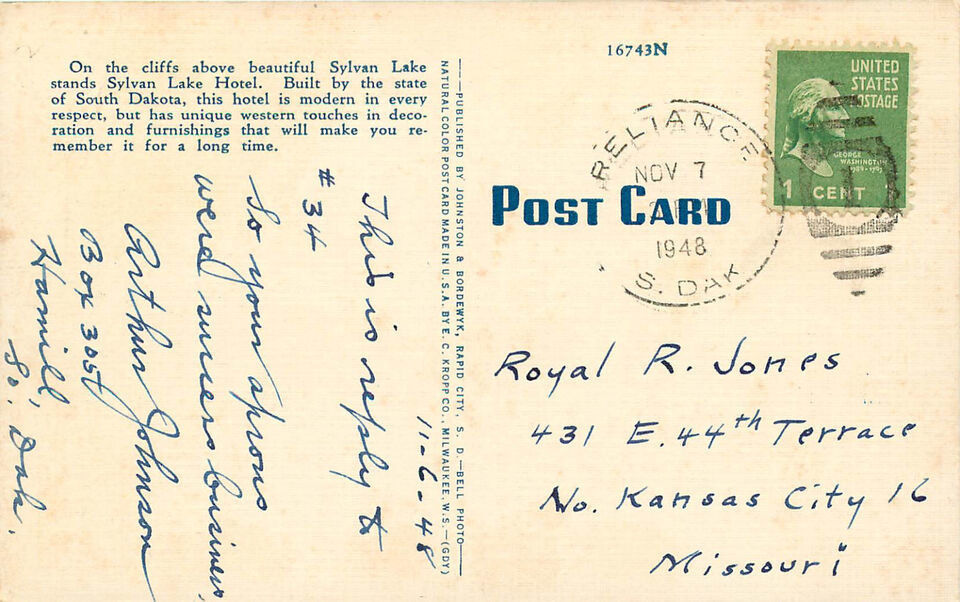 On the cliffs above beautiful Sylvan Lake
stands Sylvan Lake Hotel. Built by the state
of South Dakota, this hotel is modern in every
respect, but has unique western touches in deco-
ration and furnishings that will make you re-
member it for a long time.
11-6-48
This is reply to
# 34
So your aprons
were success business,
Arthur Johnson
Box 305
Hamill
So. Dak.
—PUBLISHED BY JOHNSTON & BORDEWYK, RAPID CITY, S. D.—BELL PHOTO—
NATURAL COLOR POST CARD MADE IN U.S.A. BY E. C. KROPP CO., MILWAUKEE, WIS.—(GDY)
16743N
POST CARD
RELIANCE
NOV 7
1948
S. DAK
UNITED
STATES
POSTAGE
GEORGE
WASHINGTON
1789-1797
1 CENT
Royal R. Jones
431 E. 44th Terrace
No. Kansas City 16
Missouri